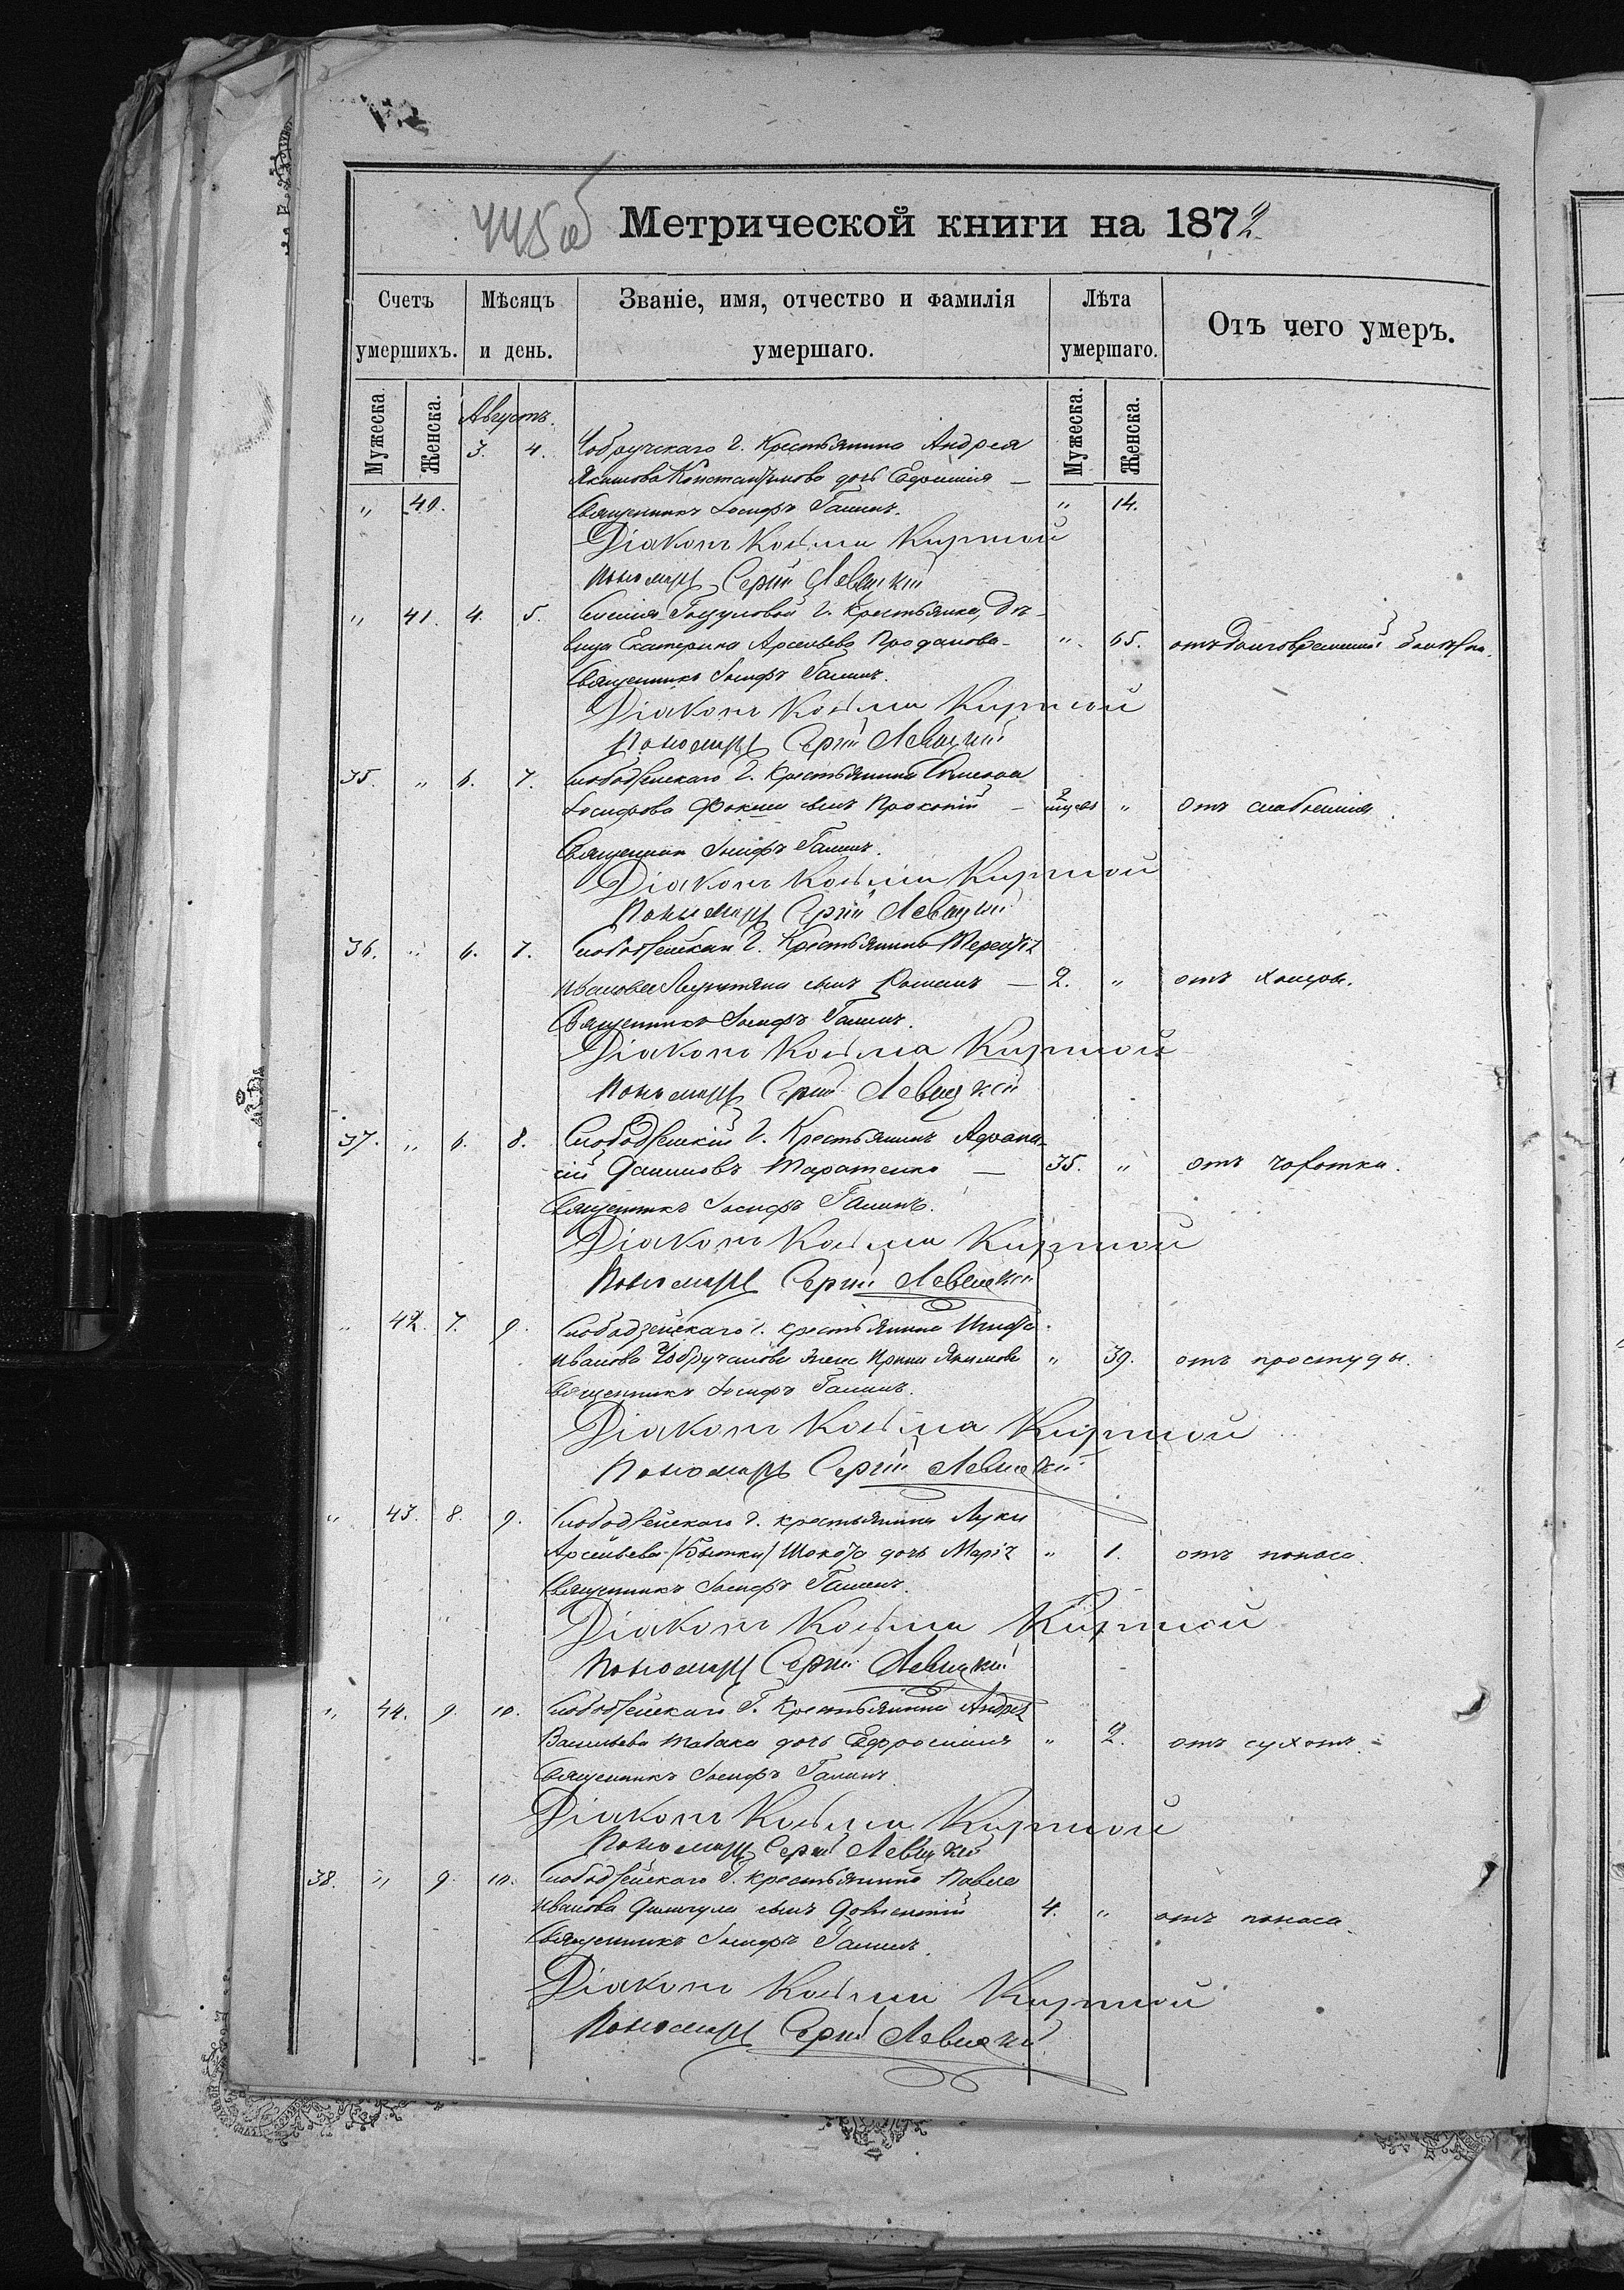 445 об
Метрической книги на 1872
Счетъ умершихъ.
Мѣсяцъ и день.
Званіе, имя, отчество и фамилія умершаго.
Лѣта умершаго.
Отъ чего умеръ.
Мужеска. Женска.
Мужеска. Женска.
Августъ.
3. 4. Чобручскаго О. Крестьянина Андрея
Якимова Константинова дочь Евфимія —
„ 40. Священникъ Іосифъ Галинъ. „ 14.
Діаконъ Козьма Кирной
Пономарь Сергій Левицкій
„ 41. 4. 5. О. Крестьянка, дѣ-
вица Екатерина Арсеньева Проданова — „ 65. отъ долговременной болѣзни.
Священникъ Іосифъ Галинъ.
Діаконъ Козьма Кирной
Пономарь Сергій Левицкій
35. „ 6. 7. Слободзейскаго О. Крестьянина Симеона
Іосифова Фокши сынъ Прокопій — 2 мѣсяц „ отъ слабленія.
Священник Іосифъ Галинъ.
Діаконъ Козьма Кирной
Пономарь Сергій Левицкій
36. „ 6. 7. О. Крестьянина Терентія
Иванова сынъ Романъ — 2. „
Священникъ Іосифъ Галинъ.
Діаконъ Козьма Кирной
Пономарь Сергій Левицкій
37. „ 6. 8. Слободзейскій О. Крестьянинъ Афана-
сій Даниловъ Тарасенко — 35. „ отъ чахотки.
Священникъ Іосифъ Галинъ.
Діаконъ Козьма Кирной
Пономарь Сергій Левицкій
„ 42. 7. 9. Слободзейскаго О. крестьянина Игната
Иванова Чобручанова жена Ирина Якимова „ 39. отъ простуды.
Священникъ Іосифъ Галинъ.
Діаконъ Козьма Кирной
Пономарь Сергій Левицкій
„ 43. 8. 9. Слободзейскаго О. крестьянина Луки
Арсеньева дочь Марія „ 1. отъ поноса.
Священникъ Іосифъ Галинъ.
Діаконъ Козьма Кирной
Пономарь Сергій Левицкій
„ 44. 9. 10. Слободзейскаго О. Крестьянина Андрея
Васильева Табака дочь Ефросинія „ 2. отъ сухотъ.
Священникъ Іосифъ Галинъ.
Діаконъ Козьма Кирной
Пономарь Сергій Левицкій
38. „ 9. 10. Слободзейскаго О. Крестьянина Павла
Иванова сынъ 4. „ отъ поноса.
Священникъ Іосифъ Галинъ.
Діаконъ Козьма Кирной
Пономарь Сергій Левицкій